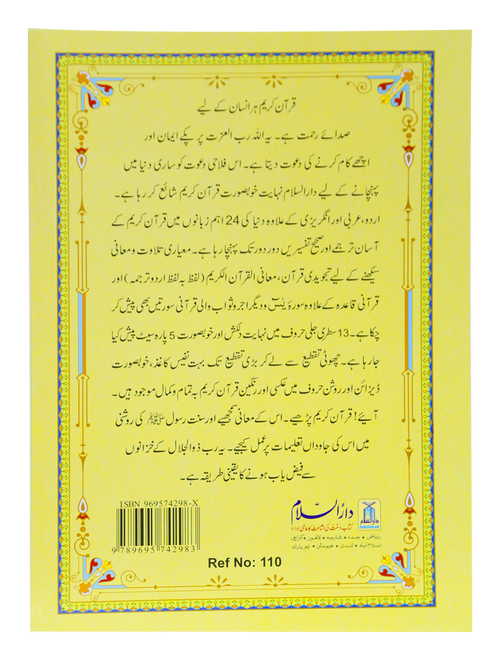 قرآن کریم ہر انسان کے لیے
صدائے رحمت ہے۔ یہ اللہ رب العزت پر پکے ایمان اور
اچھے کام کرنے کی دعوت دیتا ہے۔ اس فلاحی دعوت کو ساری دنیا میں
پہنچانے کے لیے دارالسلام نہایت خوبصورت قرآن کریم شائع کر رہا ہے۔
اردو، عربی اور انگریزی کے علاوہ دنیا کی 24 اہم زبانوں میں قرآن کریم کے
آسان ترجمے اور صحیح تفسیریں دور دور تک پہنچا رہا ہے۔ معیاری تلاوت و معانی
سیکھنے کے لیے تجویدی قرآن، معانی القرآن الکریم (لفظ بہ لفظ اردو ترجمہ) اور
قرآنی قاعدہ کے علاوہ سورۂ یٰسٓ و دیگر اجر و ثواب والی قرآنی سورتیں بھی پیش کر
چکا ہے۔ 13 سطری جلی حروف میں نہایت دلکش اور خوبصورت 5 پارہ سیٹ پیش کیا
جا رہا ہے۔ چھوٹی تقطیع سے لے کر بڑی تقطیع تک بہت نفیس کاغذ، خوبصورت
ڈیزائن اور روشن حروف میں عکسی اور رنگین قرآن کریم بہ تمام و کمال موجود ہیں۔
آیئے! قرآن کریم پڑھیے۔ اس کے معانی سمجھیے اور سنت رسول ﷺ کی روشنی
میں اس کی جاوداں تعلیمات پر عمل کیجیے۔ یہ رب ذوالجلال کے خزانوں
سے فیض یاب ہونے کا یقینی طریقہ ہے۔
ISBN 969574298-X
9 789695 742983
دارالسلام
کتاب و سنت کی اشاعت کا عالمی ادارہ
ریاض • جدہ • شارجہ • لاہور • کراچی
اسلام آباد • لندن • هیوسٹن • نیویارک
Ref No: 110